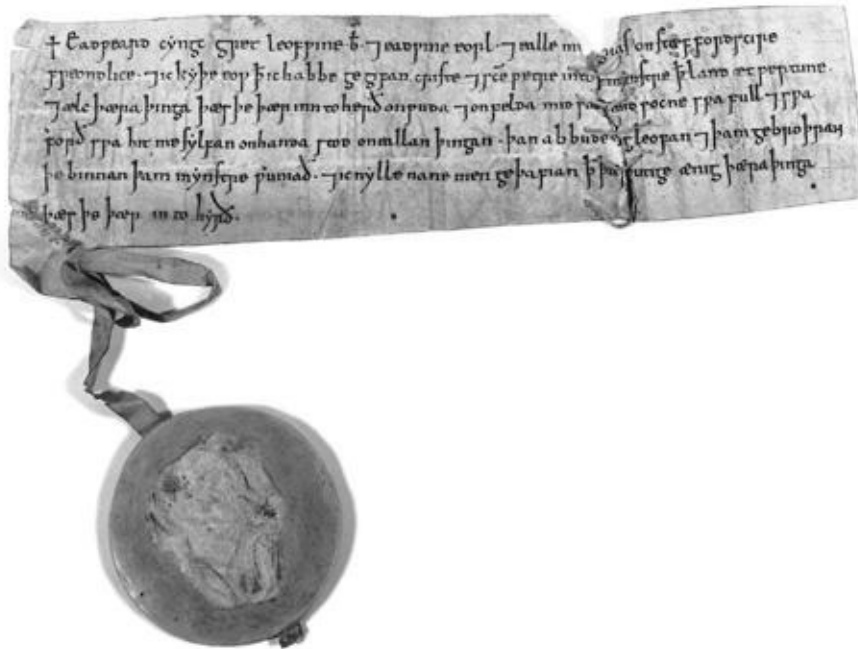 † EadǷard cyngc gret leofƿine b̄ · ⁊ eadƿine eorl · ⁊ ealle on stæffordscire
freondlice · ⁊ ic kyþe eoƿ ꝥ ic habbe gegyfan criste ⁊ sc̄e petre into ꝥ land æt pertune ·
⁊ ælc þæra þinga þæs þe þær inn to herð on ƿuda ⁊ on felda mid socne sƿa full ⁊ sƿa
forð sƿa hit me sylfan on handa stod on eallan þingan · þan abbude ⁊ þam gebroþran
þe binnan þam mynstre ƿuniað · ⁊ ic nylle nane men geþafian ꝥ ænig þæra þinga
þæs þe þær in to hyrð ·